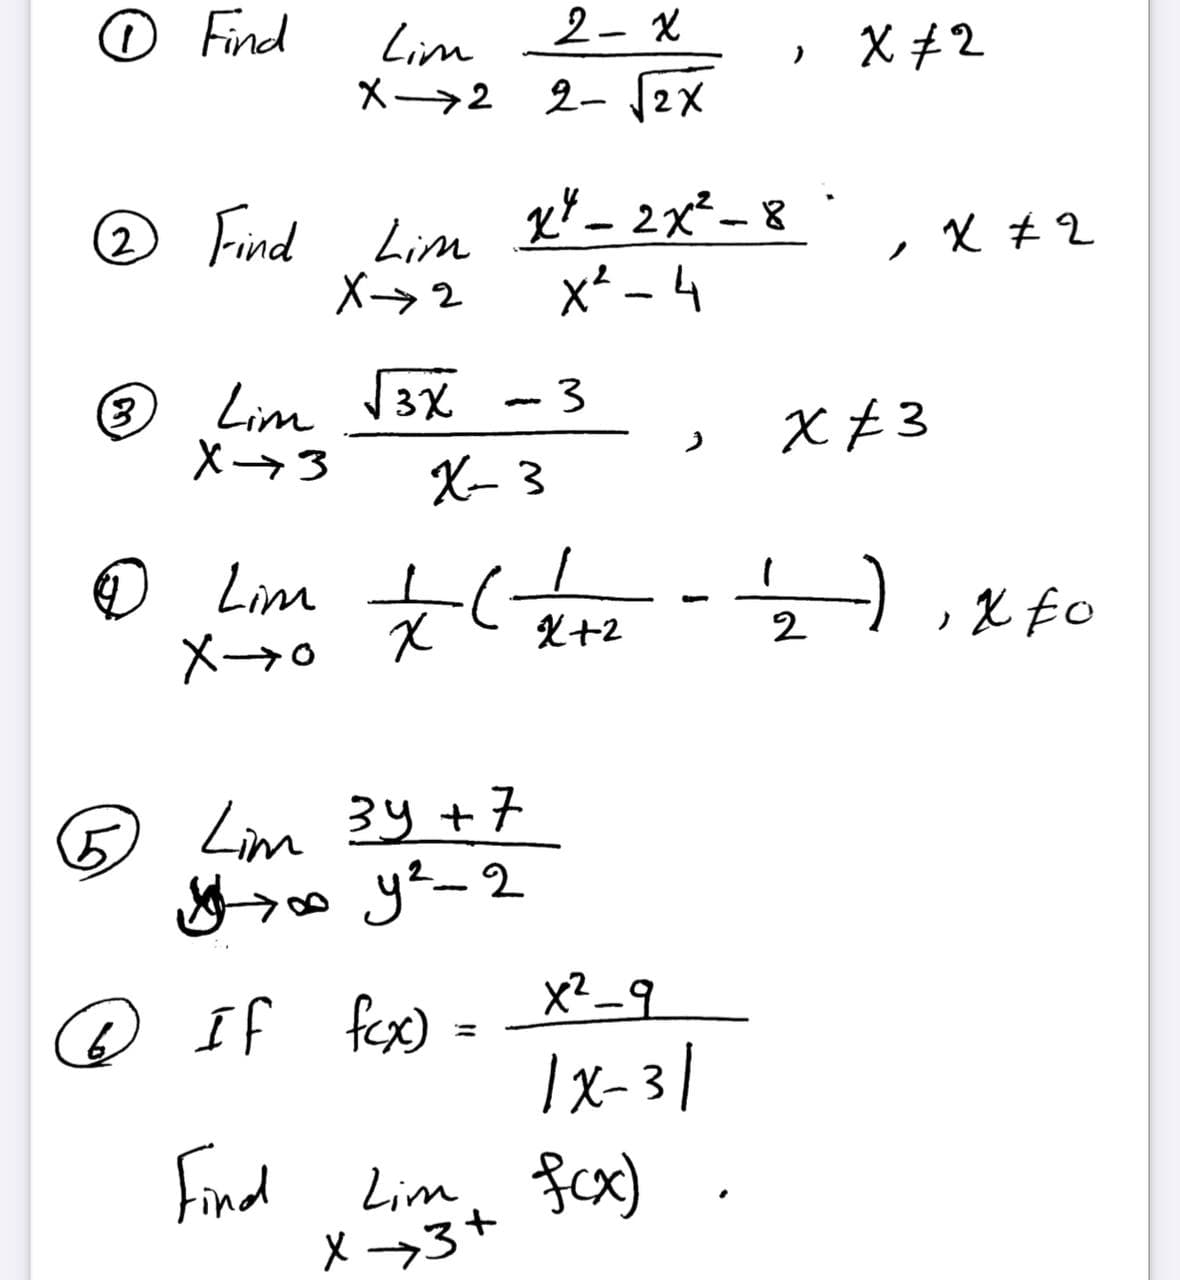 ① Find Lim x→2 (2 - x)/(2 - √2x) , x ≠ 2
② Find Lim x→2 (x⁴ - 2x² - 8)/(x² - 4) , x ≠ 2
③ Lim x→3 (√3x - 3)/(x - 3) , x ≠ 3
④ Lim x→0 1/x (1/(x+2) - 1/2) , x ≠ 0
⑤ Lim y→∞ (3y + 7)/(y² - 2)
⑥ If f(x) = (x² - 9)/|x - 3|
Find Lim x→3⁺ f(x) .